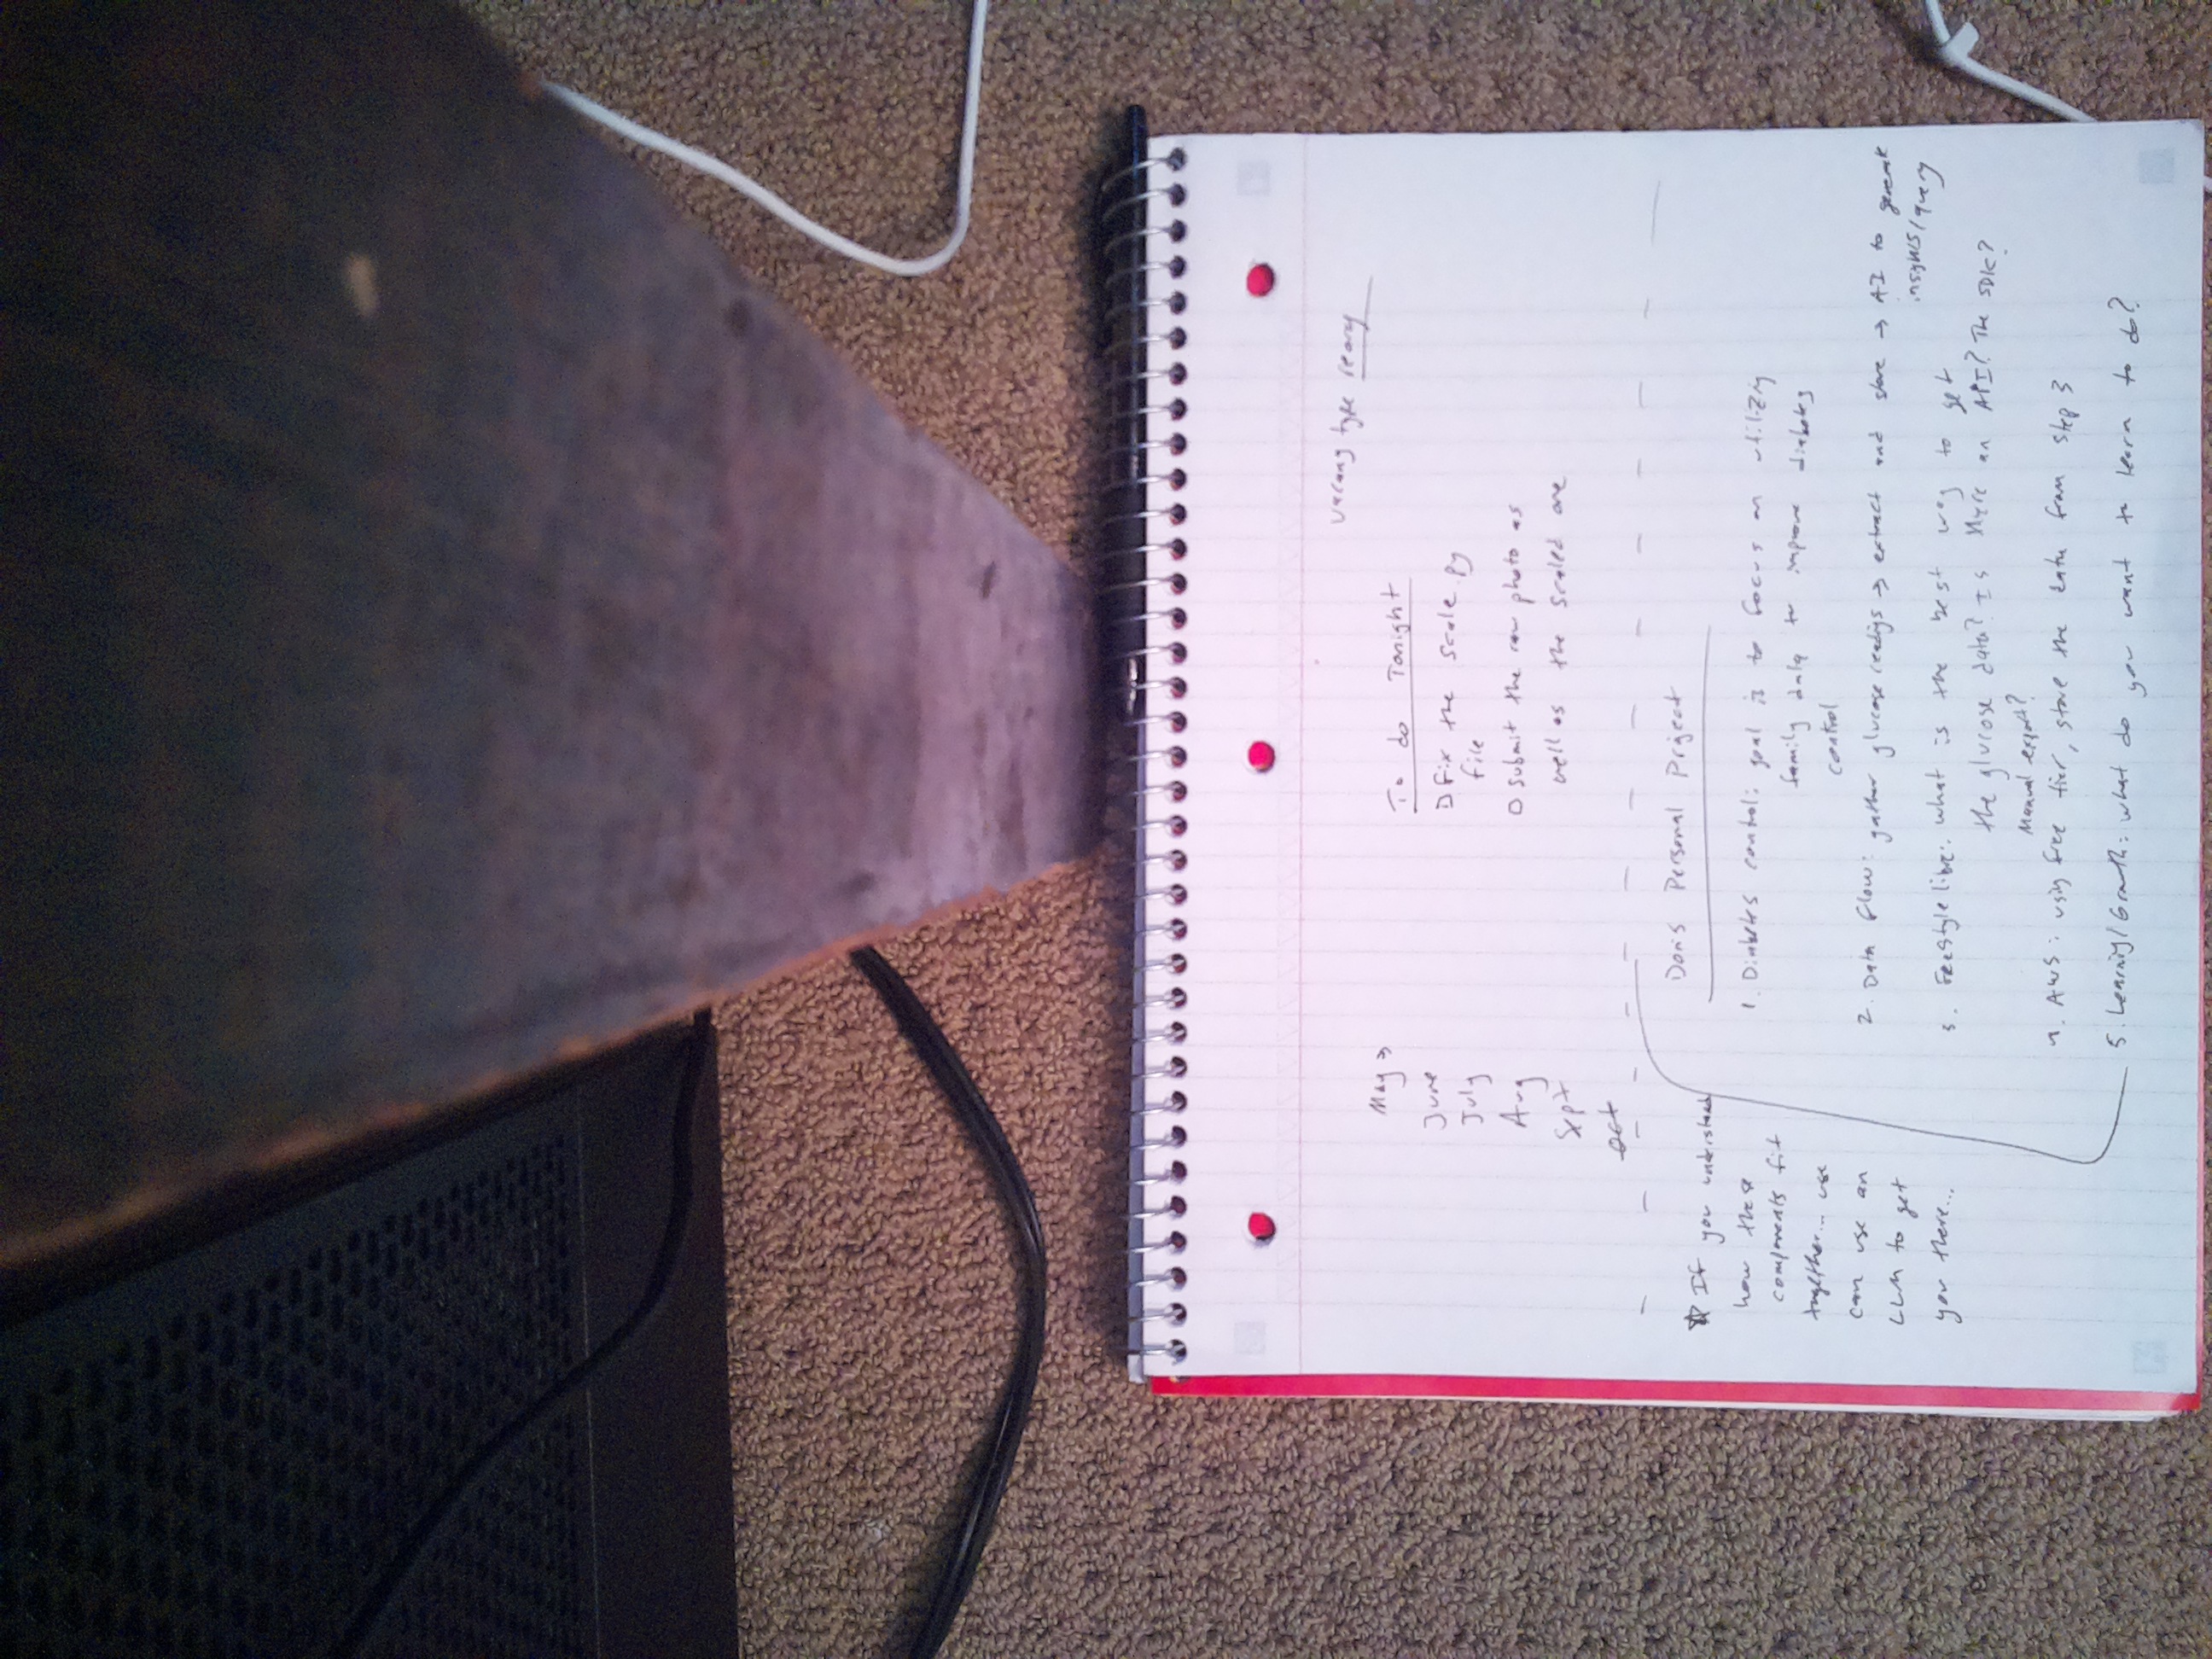 type
To do Tonight
Fix the scale.py
file
Submit the raw photo as
well as the scaled one
May
June
July
Aug
Sept
Oct
Personal Project
1. Diabetes control: goal is to focus on utilizing
family data to improve diabetes
control
2. Data flow: gather glucose readings → extract and store → AI to generate
insights/query
3. Freestyle libre: what is the best way to get
the glucose data? Is there an API? The SDK?
Manual export?
4. AWS: using free tier, store the data from step 3
5. Learning/Growth: what do you want to learn to do?
If you understand
how these
components fit
together...
can use an
LLM to get
you there...